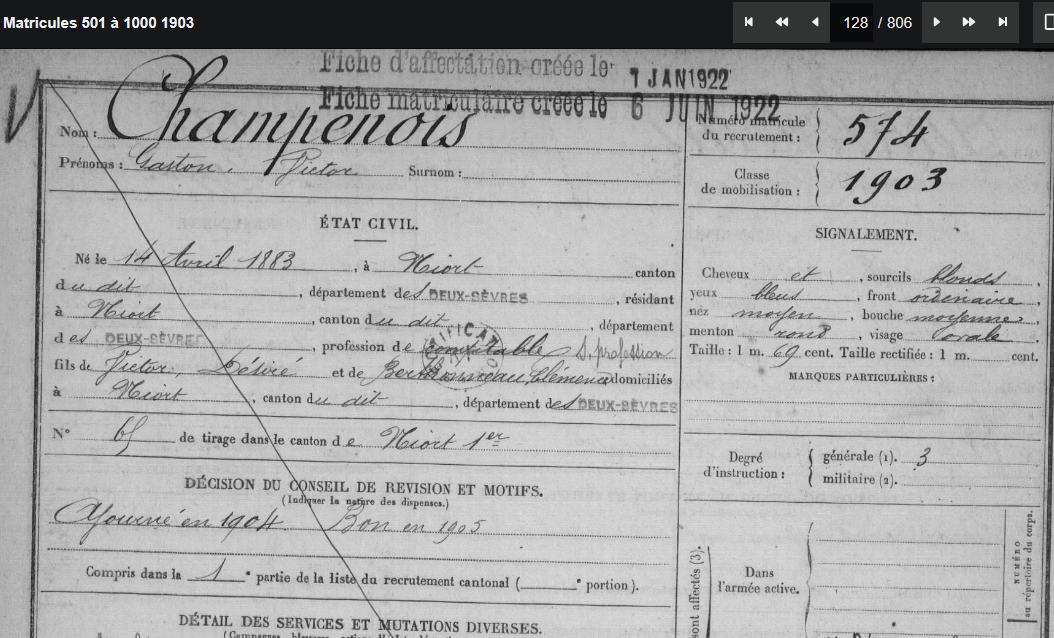 Matricules 501 à 1000 1903
128 / 806
Fiche d'affectation créée le 7 JAN 1922
Fiche matriculaire créée le 6 JUIN 1922
Nom : Champenois
Prénoms : Gaston, Victor Surnom :
Numéro matricule du recrutement : 574
Classe de mobilisation : 1903
ÉTAT CIVIL.
Né le 14 Avril 1883, à Niort canton
du dit, département des DEUX-SÈVRES, résidant
à Niort, canton du dit, département
des DEUX-SÈVRES, profession de comptable S. profession
fils de Victor, Désiré et de Clémence domiciliés
à Niort, canton du dit, département des DEUX-SÈVRES
N° 65 de tirage dans le canton de Niort 1er
DÉCISION DU CONSEIL DE REVISION ET MOTIFS.
(Indiquer la nature des dispenses.)
Ajourné en 1904 Bon en 1905
Compris dans la 1e partie de la liste du recrutement cantonal ( e portion).
DÉTAIL DES SERVICES ET MUTATIONS DIVERSES.
SIGNALEMENT.
Cheveux et, sourcils blonds,
yeux bleus, front ordinaire,
nez moyen, bouche moyenne,
menton rond, visage ovale
Taille : 1 m. 69 cent. Taille rectifiée : 1 m. cent.
MARQUES PARTICULIÈRES :
Degré d'instruction : générale (1). 3
militaire (2).
Dans l'armée active.
NUMÉRO
au répertoire du corps.
sont affectés (3).